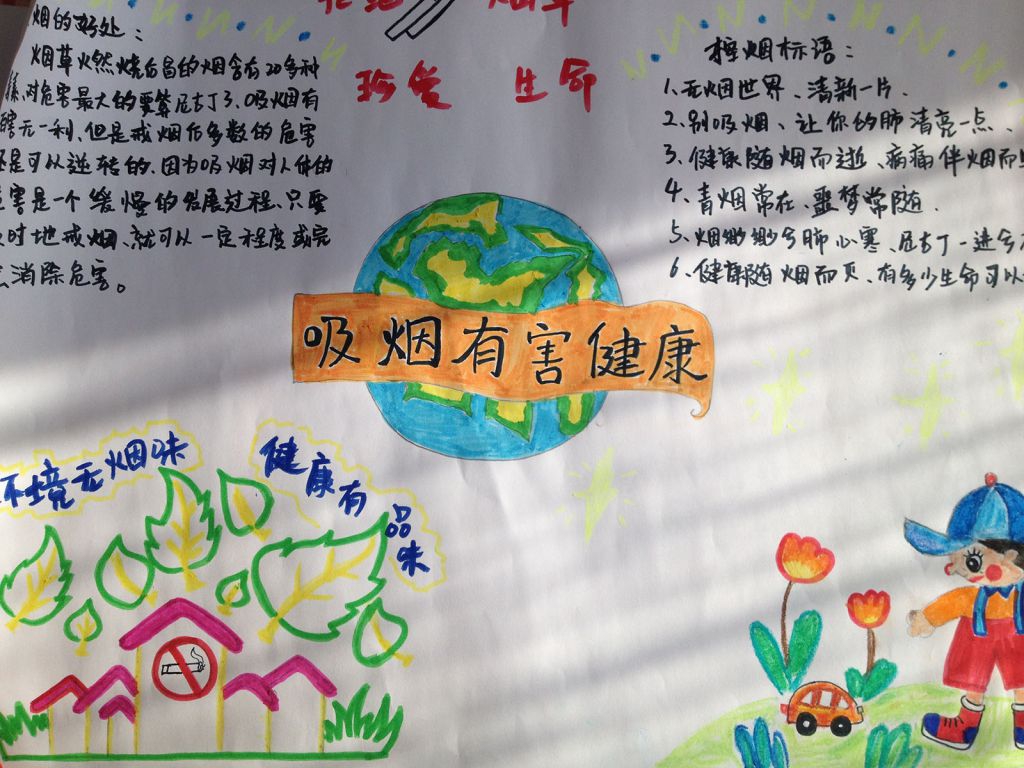 烟草
珍爱 生命
烟的好处：
烟草火燃烧后冒的烟含有20多种
对危害最大的要算尼古丁了、吸烟有
无一利、但是戒烟后多数的危害
还是可以逆转的、因为吸烟对人体的
危害是一个缓慢的发展过程、只要
时地戒烟、就可以一定程度或完
消除危害。
控烟标语：
1、无烟世界、清新一片.
2、别吸烟、让你的肺清亮一点、
3、健康随烟而逝、病痛伴烟而
4、青烟常在、噩梦常随.
5、烟缈缈兮肺心寒、尼古丁一进兮
6、健康随烟而灭、有多少生命可以
吸烟有害健康
环境无烟味
健康有品味